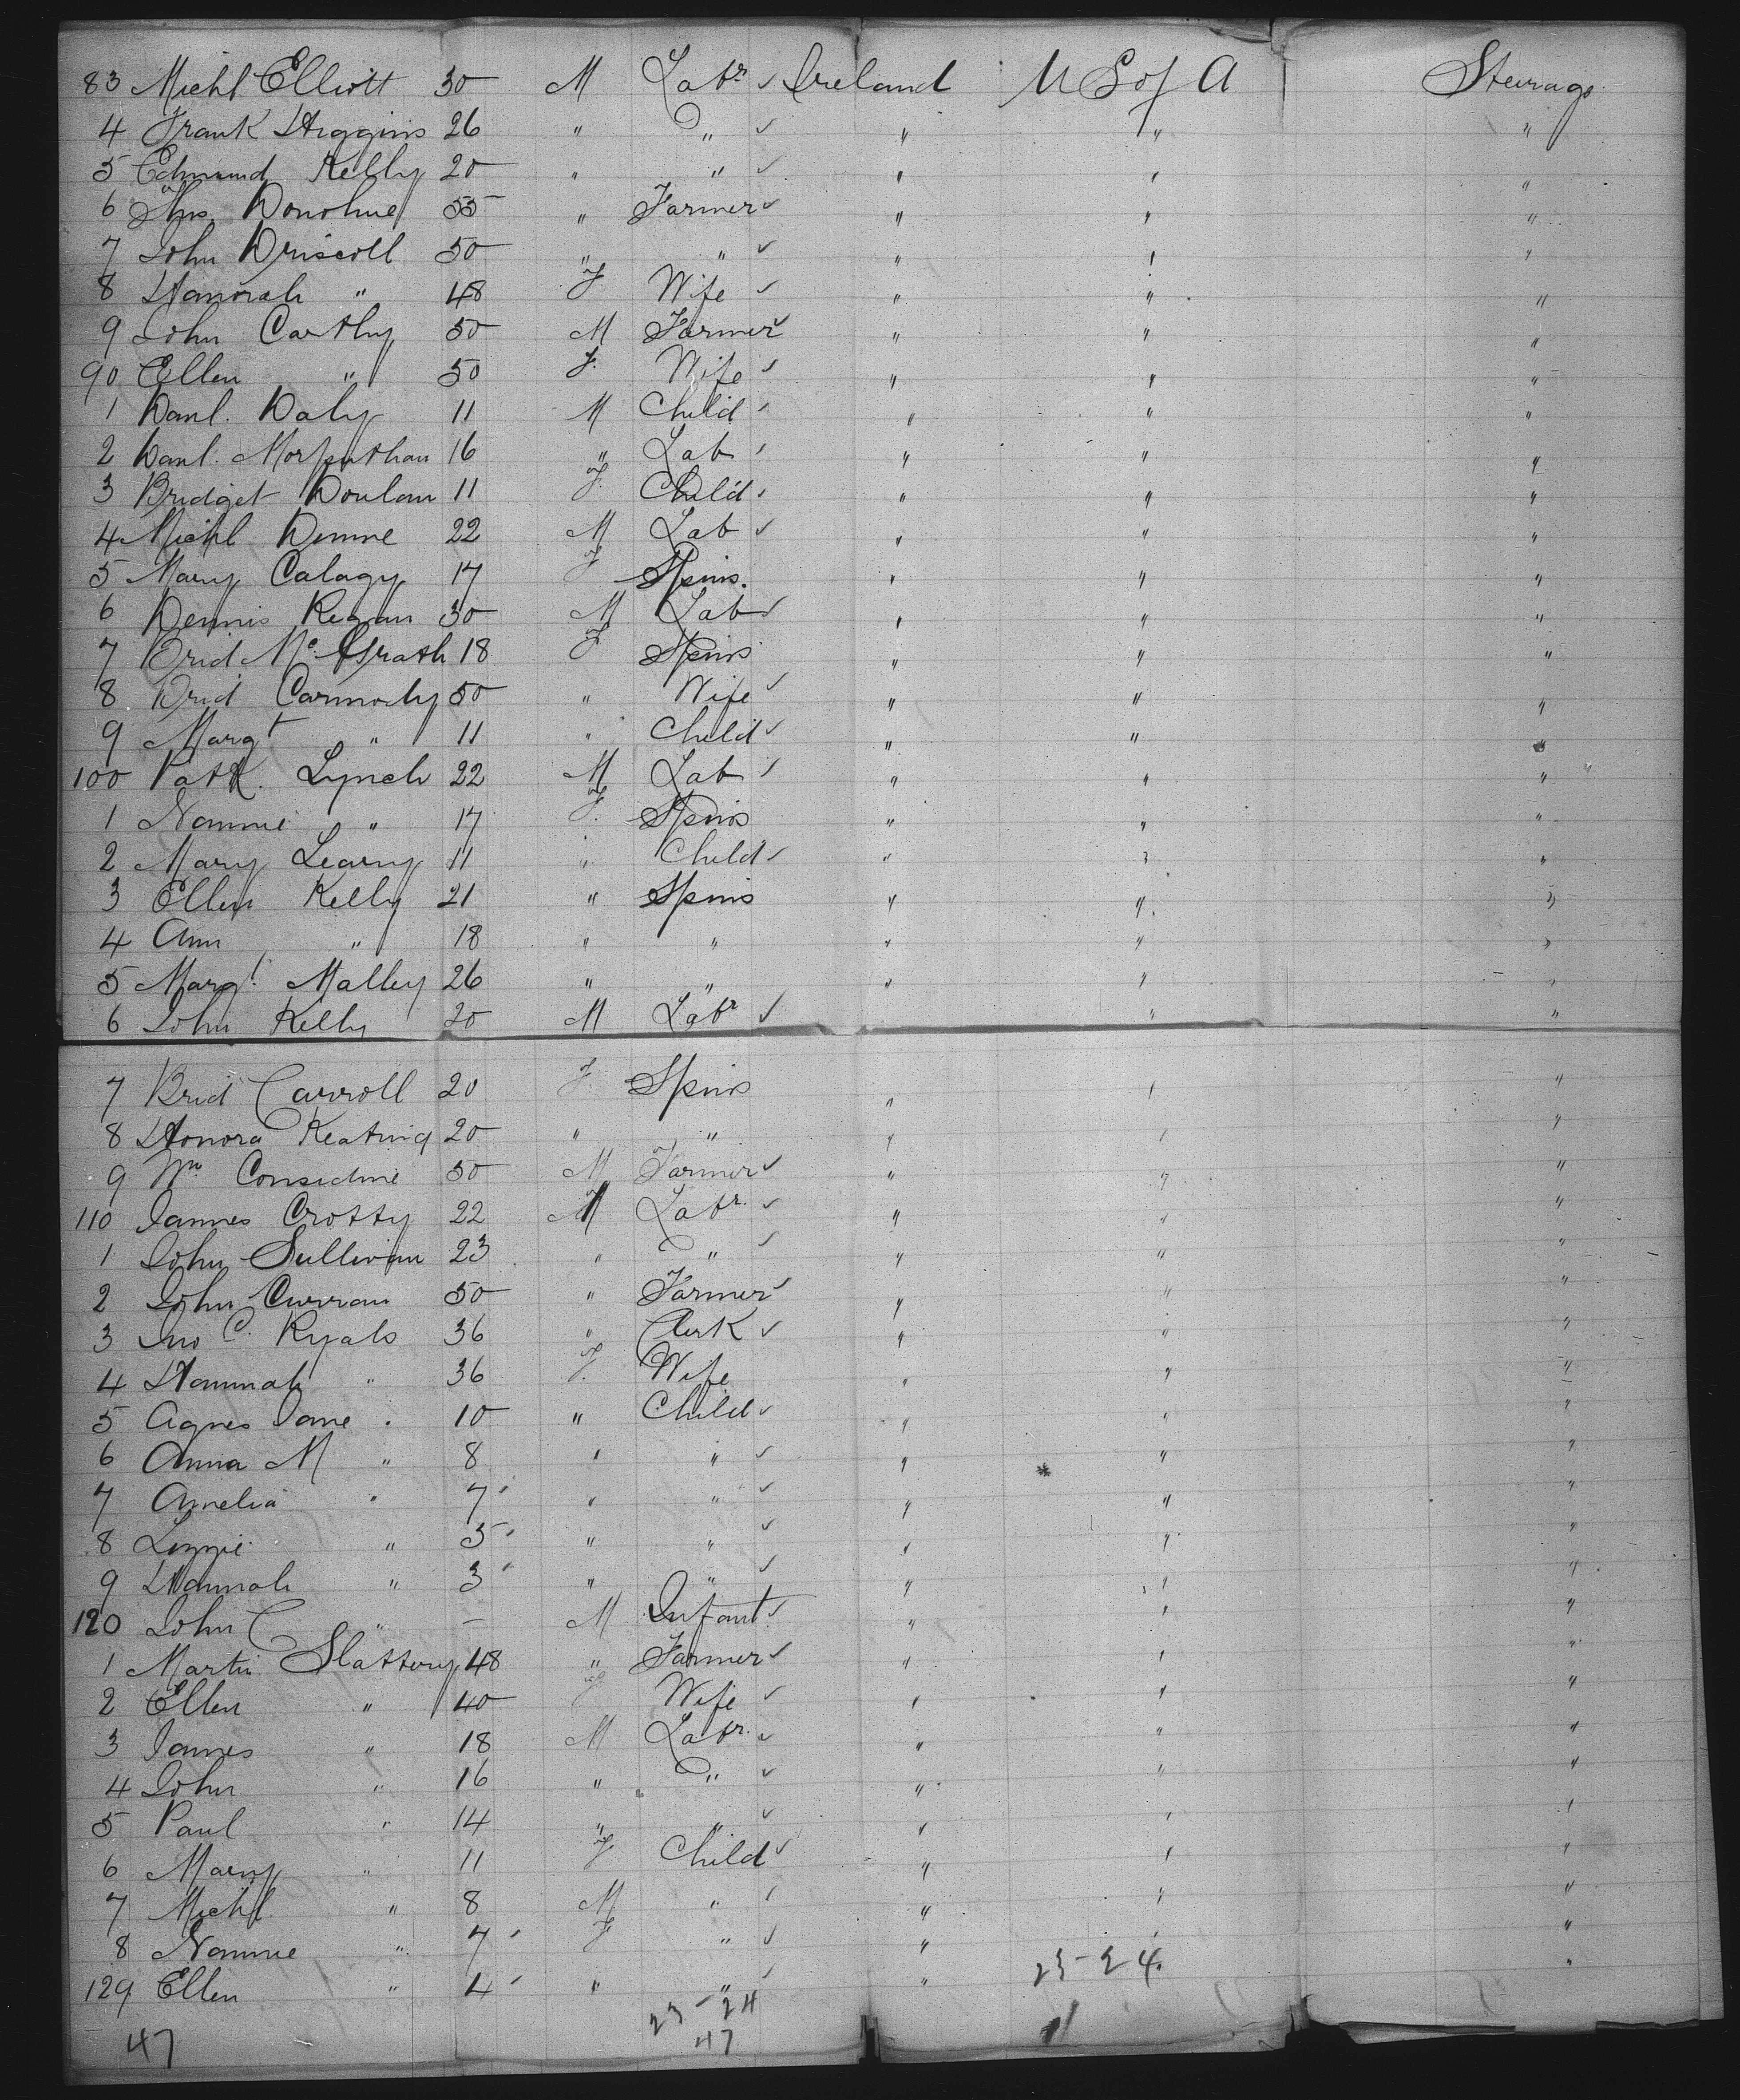 83 Michl Elliott 30 M Labr ✓ Ireland U S of A Steerage
4 Frank Higgins 26 " " ✓ " " "
5 Edmund Kelly 20 " " ✓ " " "
6 Thos. Donohue 55 " Farmer ✓ " " "
7 John Driscoll 50 " " ✓ " " "
8 Hanorah " 48 F Wife ✓ " " "
9 John Carthy 50 M Farmer ✓ " " "
90 Ellen " 50 F. Wife ✓ " " "
1 Danl. Daly 11 M Child ✓ " " "
2 Danl. 16 " Lab ✓ " " "
3 Bridget Doulan 11 F. Child ✓ " " "
4 Michl Dunne 22 M Lab ✓ " " "
5 Mary Calagy 17 F Spins. " " "
6 Dennis Regan 30 M Lab ✓ " " "
7 Brid McGrath 18 F Spins " " "
8 Brid Carmody 50 " Wife ✓ " " "
9 Margt " 11 " Child ✓ " " "
100 Patk. Lynch 22 M Lab ✓ " " "
1 Nannie " 17 F. Spins " " "
2 Mary Leary 11 " Child ✓ " " "
3 Ellen Kelly 21 " Spins " " "
4 Ann " 18 " " " " "
5 Margt. Malley 26 " " " " "
6 John Kelly 20 M Labr ✓ " "
7 Brid Carroll 20 F. Spins " " "
8 Honora Keating 20 " " " " "
9 Wm. Considine 50 M Farmer ✓ " " "
110 James Crotty 22 M Labr. ✓ " " "
1 John Sullivan 23 " " ✓ " " "
2 John Curran 50 " Farmer ✓ " " "
3 Jno C. Ryals 36 " Clerk ✓ " " "
4 Hannah " 36 F. Wife " " "
5 Agnes Jane " 10 " Child ✓ " " "
6 Anna M " 8 " " ✓ " " "
7 Amelia " 7 " " ✓ " " "
8 Lizzie " 5 " " ✓ " " "
9 Hannah " 3 " " ✓ " " "
120 John C " – M Infant ✓ " " "
1 Martin Slattery 48 " Farmer ✓ " " "
2 Ellen " 40 F Wife ✓ " " "
3 James " 18 M Labr. ✓ " " "
4 John " 16 " " ✓ " " "
5 Paul " 14 " " ✓ " " "
6 Mary " 11 F Child ✓ " " "
7 Michl. " 8 M " ✓ " " "
8 Nannie " 7 F " ✓ " " "
129 Ellen " 4 " " ✓ " 23-24. "
23-24
47 47